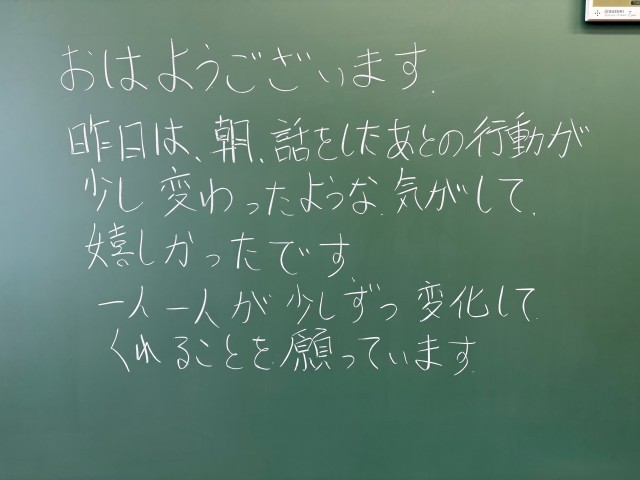 おはようございます.
昨日は、朝、話をしたあとの行動が
少し変わったような.気がして.
嬉しかったです.
一人一人が少しずつ変化して.
くれることを.願っています.